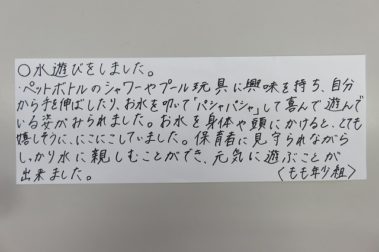 ○水遊びをしました。
・ペットボトルのシャワーやプール玩具に興味を持ち、自分
から手を伸ばしたり、お水を叩いて「パシャパシャ」して喜んで遊んで
いる姿がみられました。お水を身体や頭にかけると、とても
嬉しそうに、にこにこしていました。保育者に見守られながら
しっかり水に親しむことができ、元気に遊ぶことが
出来ました。
〈もも年少組〉